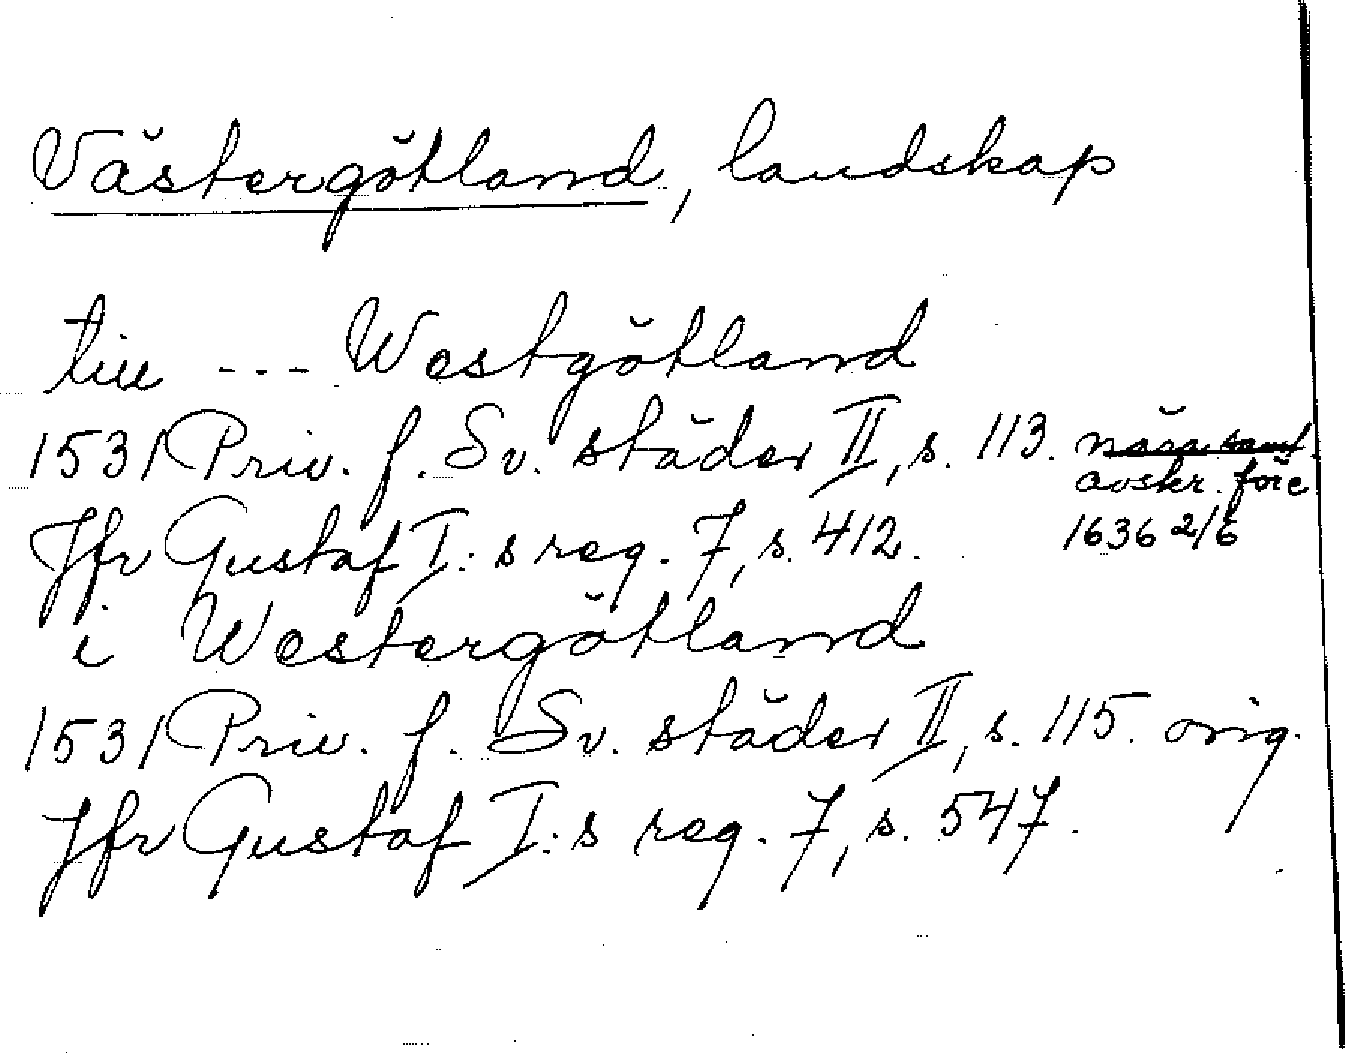 Västergötland, landskap
till --- Westgötland
1531 Priv. f. Sv. städer II, s. 113. nära samt.
avskr. före
1636 2/6
Jfr Gustaf I:s reg. 7, s. 412.
i Westergötland
1531 Priv. f. Sv. städer II, s. 115. orig.
Jfr Gustaf I:s reg. 7, s. 547.